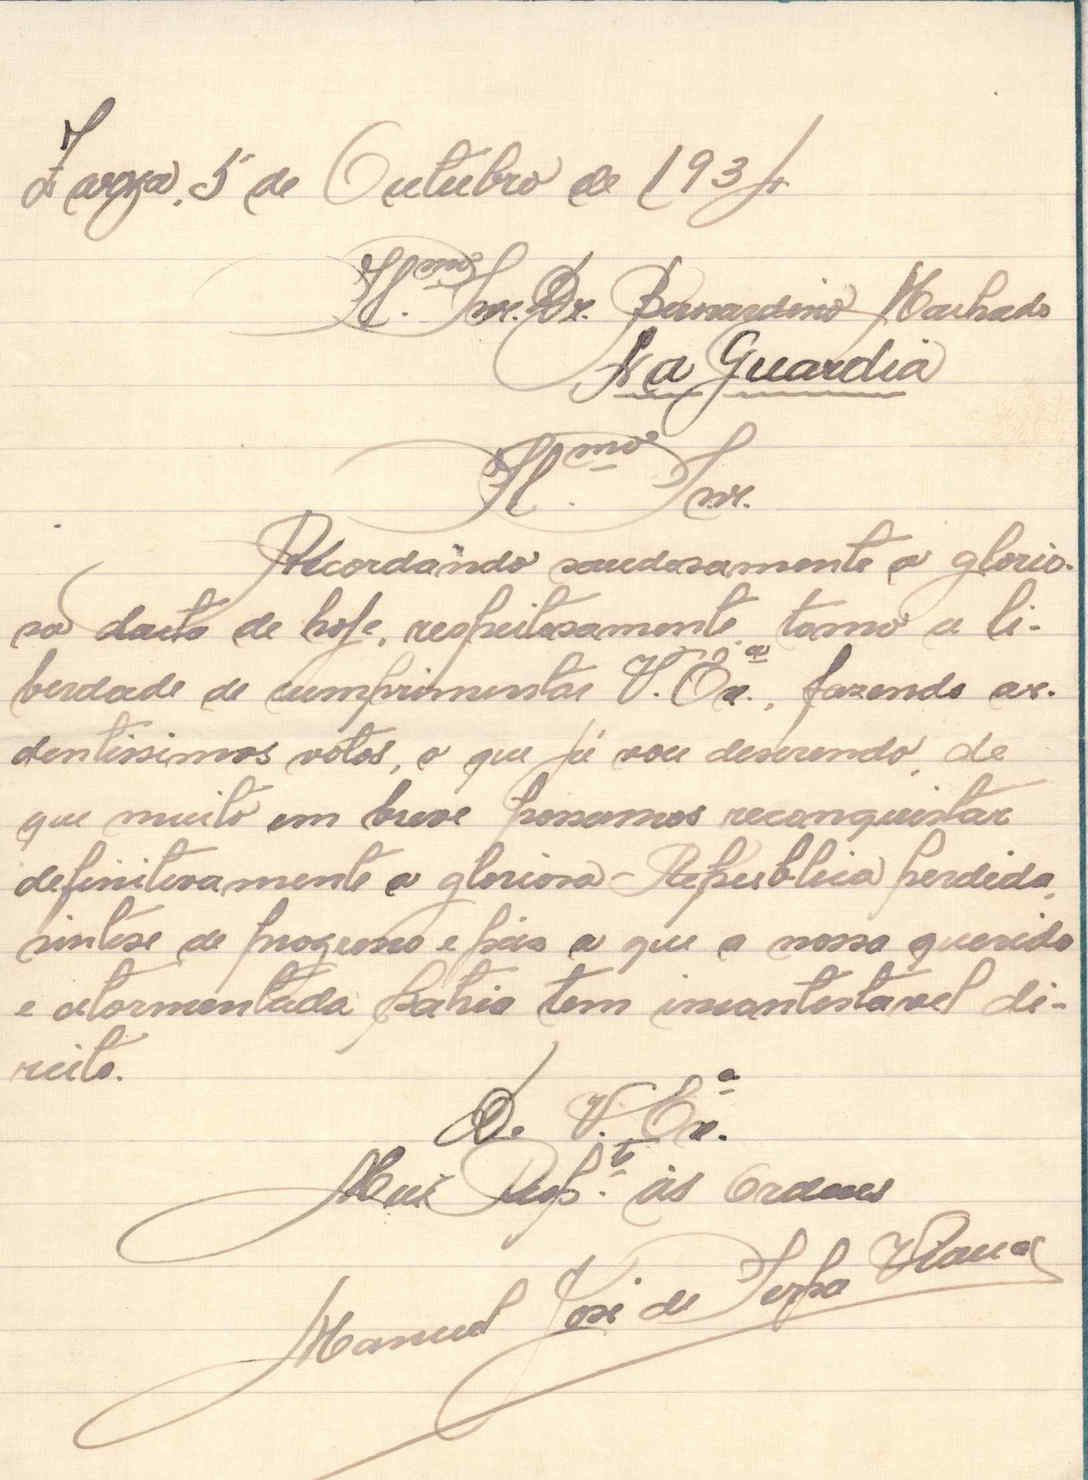 5 de Outubro de 193
Il.mo Snr. Dr. Bernardino Machado
La Guardia
Il.mo Snr.
Recordando saudosamente a glorio-
sa data de hoje, respeitosamente, tomo a li-
berdade de cumprimentar V. Ex.a, fazendo ar-
dentissimos votos, o que já vou descrendo, de
que muito em breve possamos reconquistar
definitivamente a gloriosa Republica perdida,
sintese de progresso e paz a que a nossa querida
e atormentada patria tem incontestavel di-
reito.
De V. Ex.a
Mui Resp.t às Ordens
Manuel José de Serpa